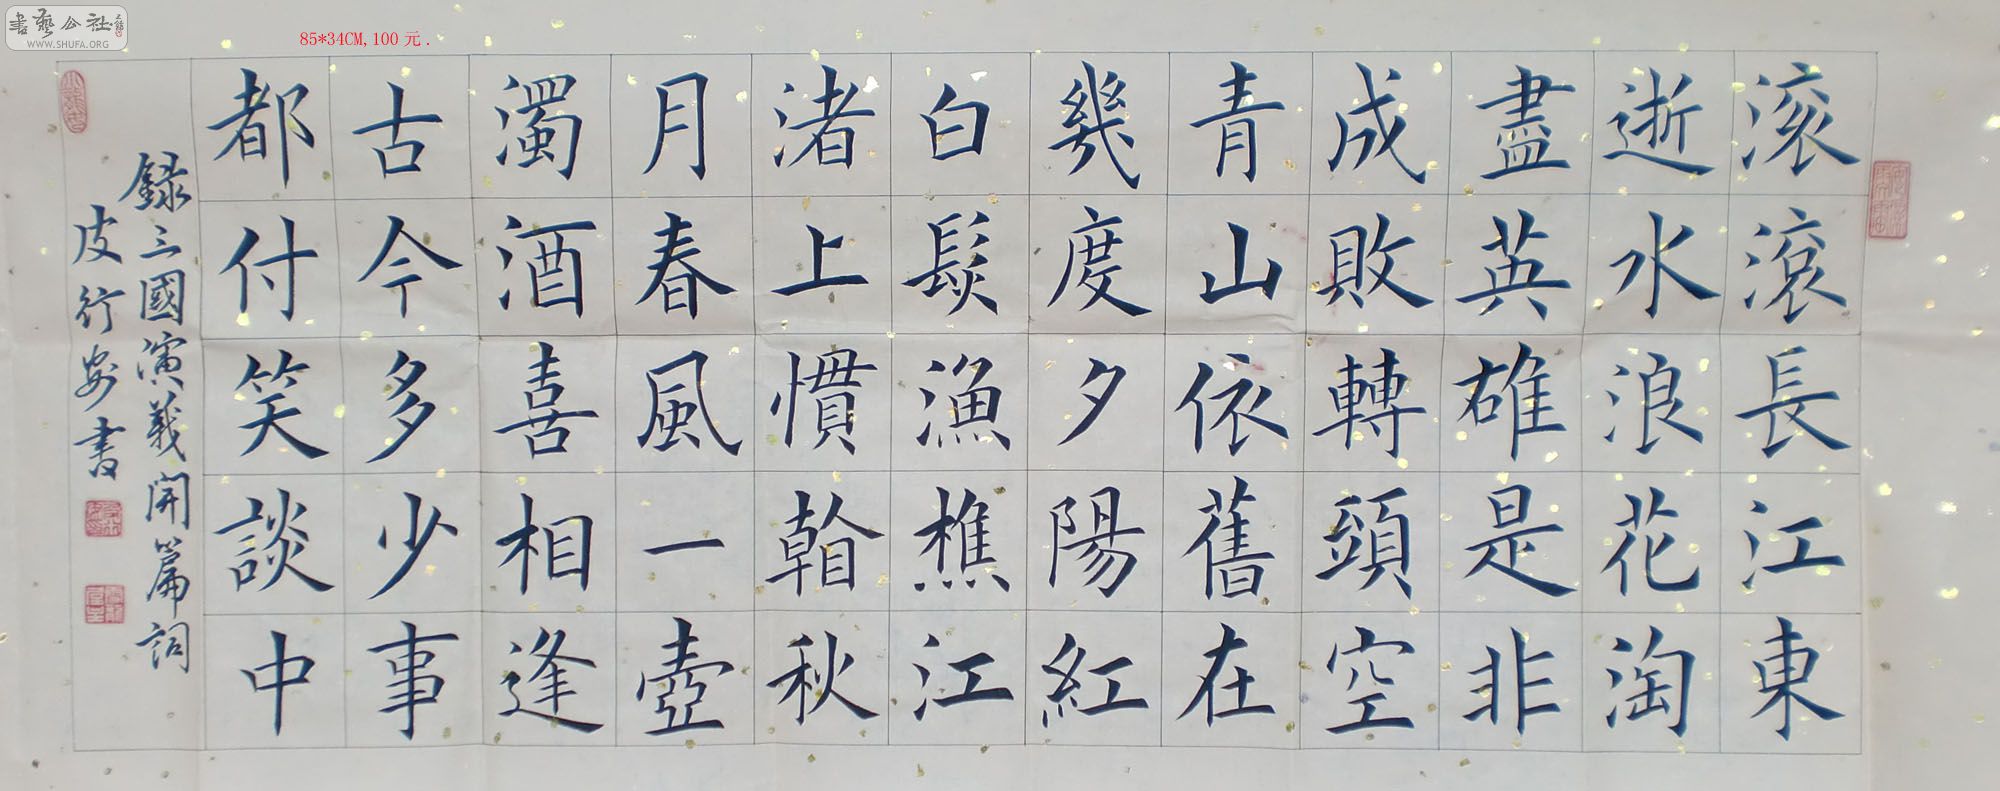 書藝公社
WWW.SHUFA.ORG
85*34CM,100元.
滚滾長江東
逝水浪花淘
盡英雄是非
成敗轉頭空
青山依舊在
幾度夕陽紅
白髮漁樵江
渚上慣看秋
月春風一壺
濁酒喜相逢
古今多少事
都付笑談中
錄三國演義開篇詞
皮行安書